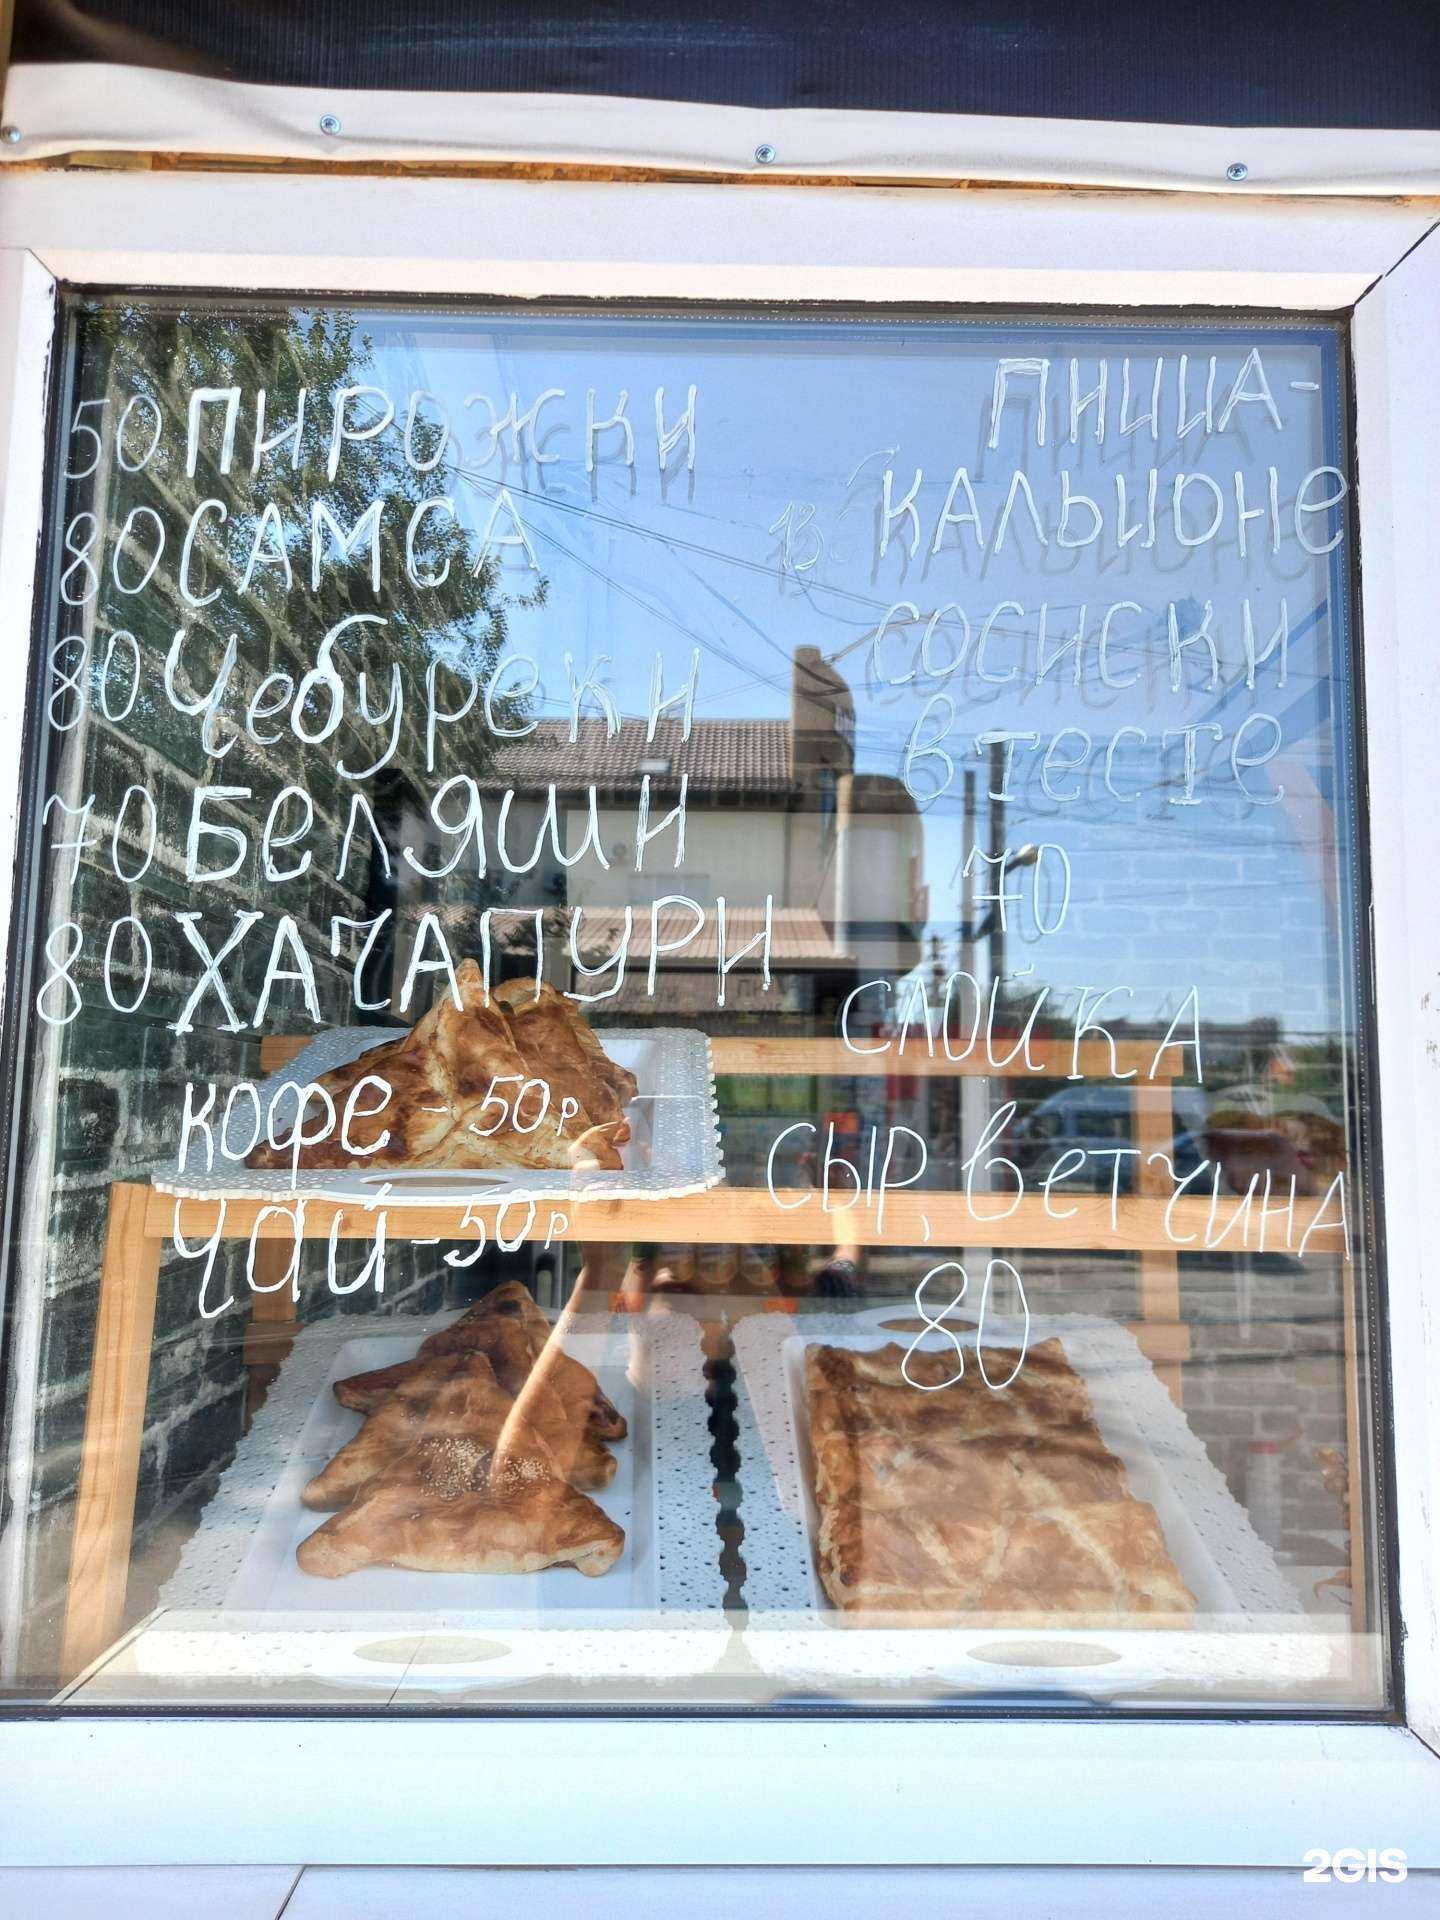 50 ПИРОЖКИ
80 САМСА
80 Чебуреки
70 Беляши
80 ХАЧАПУРИ
кофе - 50р
Чай - 50р
ПИЦЦА-
КАЛЬЦОНЕ
СОСИСКИ
в тесте
70
СЛОЙКА
СЫР, ветчИНА
80
2GIS